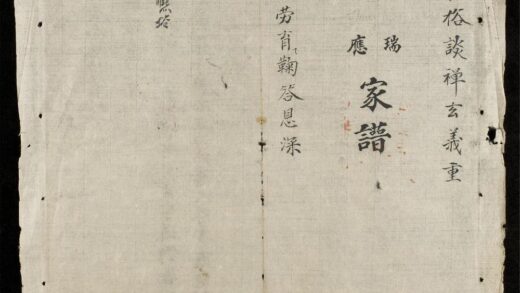 俗談禅玄義重
瑞應
家譜
劳育鞠答恩深